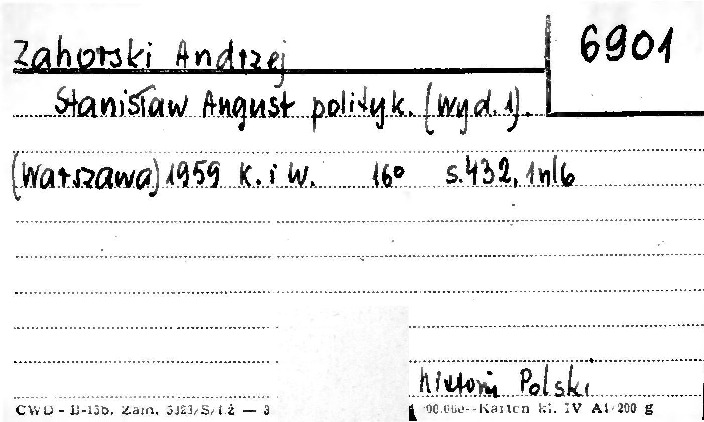 6901
Zahorski Andrzej
Stanisław August polityk. (Wyd. 1).
(Warszawa) 1959 K. i W. 16° s. 432, 1 nlb
historia Polski
CWD - B-15b. Zam. 5323/S/Łż — 3 00.000 - Karton kl. IV A1/200 g